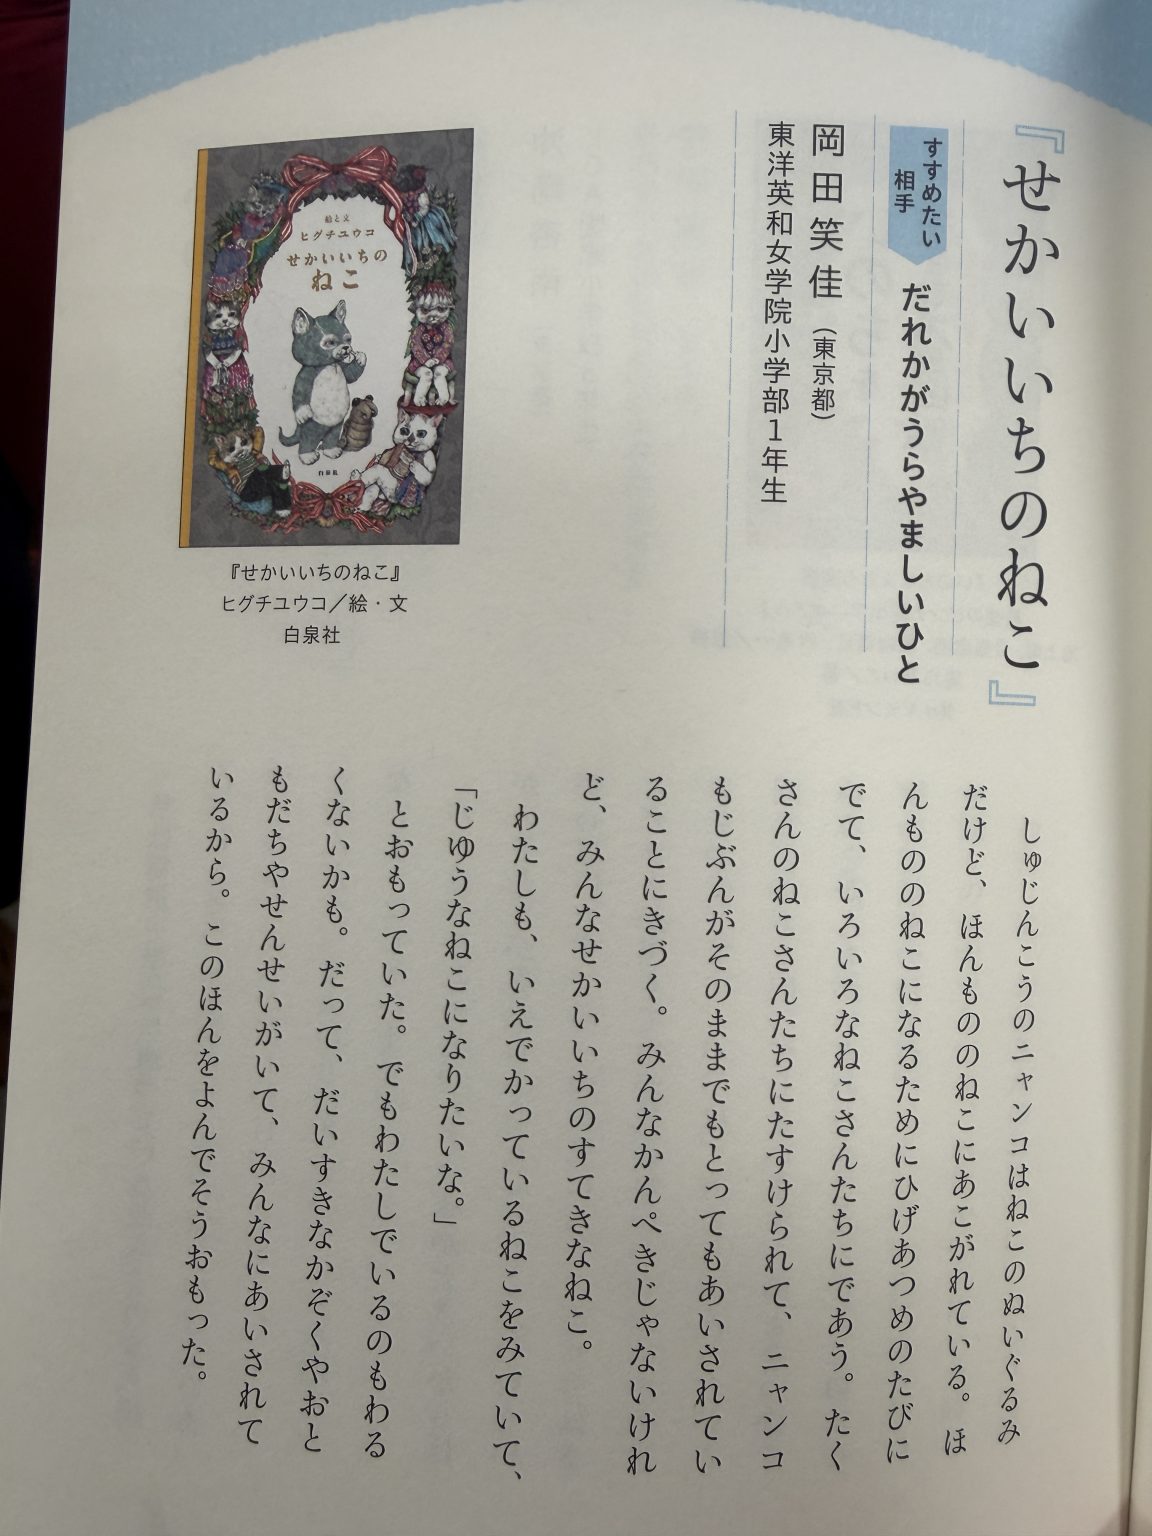 『せかいいちのねこ』
すすめたい
相手
だれかがうらやましいひと
岡田笑佳（東京都）
東洋英和女学院小学部1年生
絵と文
ヒグチユウコ
せかいいちの
ねこ
白泉社
『せかいいちのねこ』
ヒグチユウコ／絵・文
白泉社
しゅじんこうのニャンコはねこのぬいぐるみ
だけど、ほんもののねこにあこがれている。ほ
んもののねこになるためにひげあつめのたびに
でて、いろいろなねこさんたちにであう。たく
さんのねこさんたちにたすけられて、ニャンコ
もじぶんがそのままでもとってもあいされてい
ることにきづく。みんなかんぺきじゃないけれ
ど、みんなせかいいちのすてきなねこ。
わたしも、いえでかっているねこをみていて、
「じゆうなねこになりたいな。」
とおもっていた。でもわたしでいるのもわる
くないかも。だって、だいすきなかぞくやおと
もだちやせんせいがいて、みんなにあいされて
いるから。このほんをよんでそうおもった。